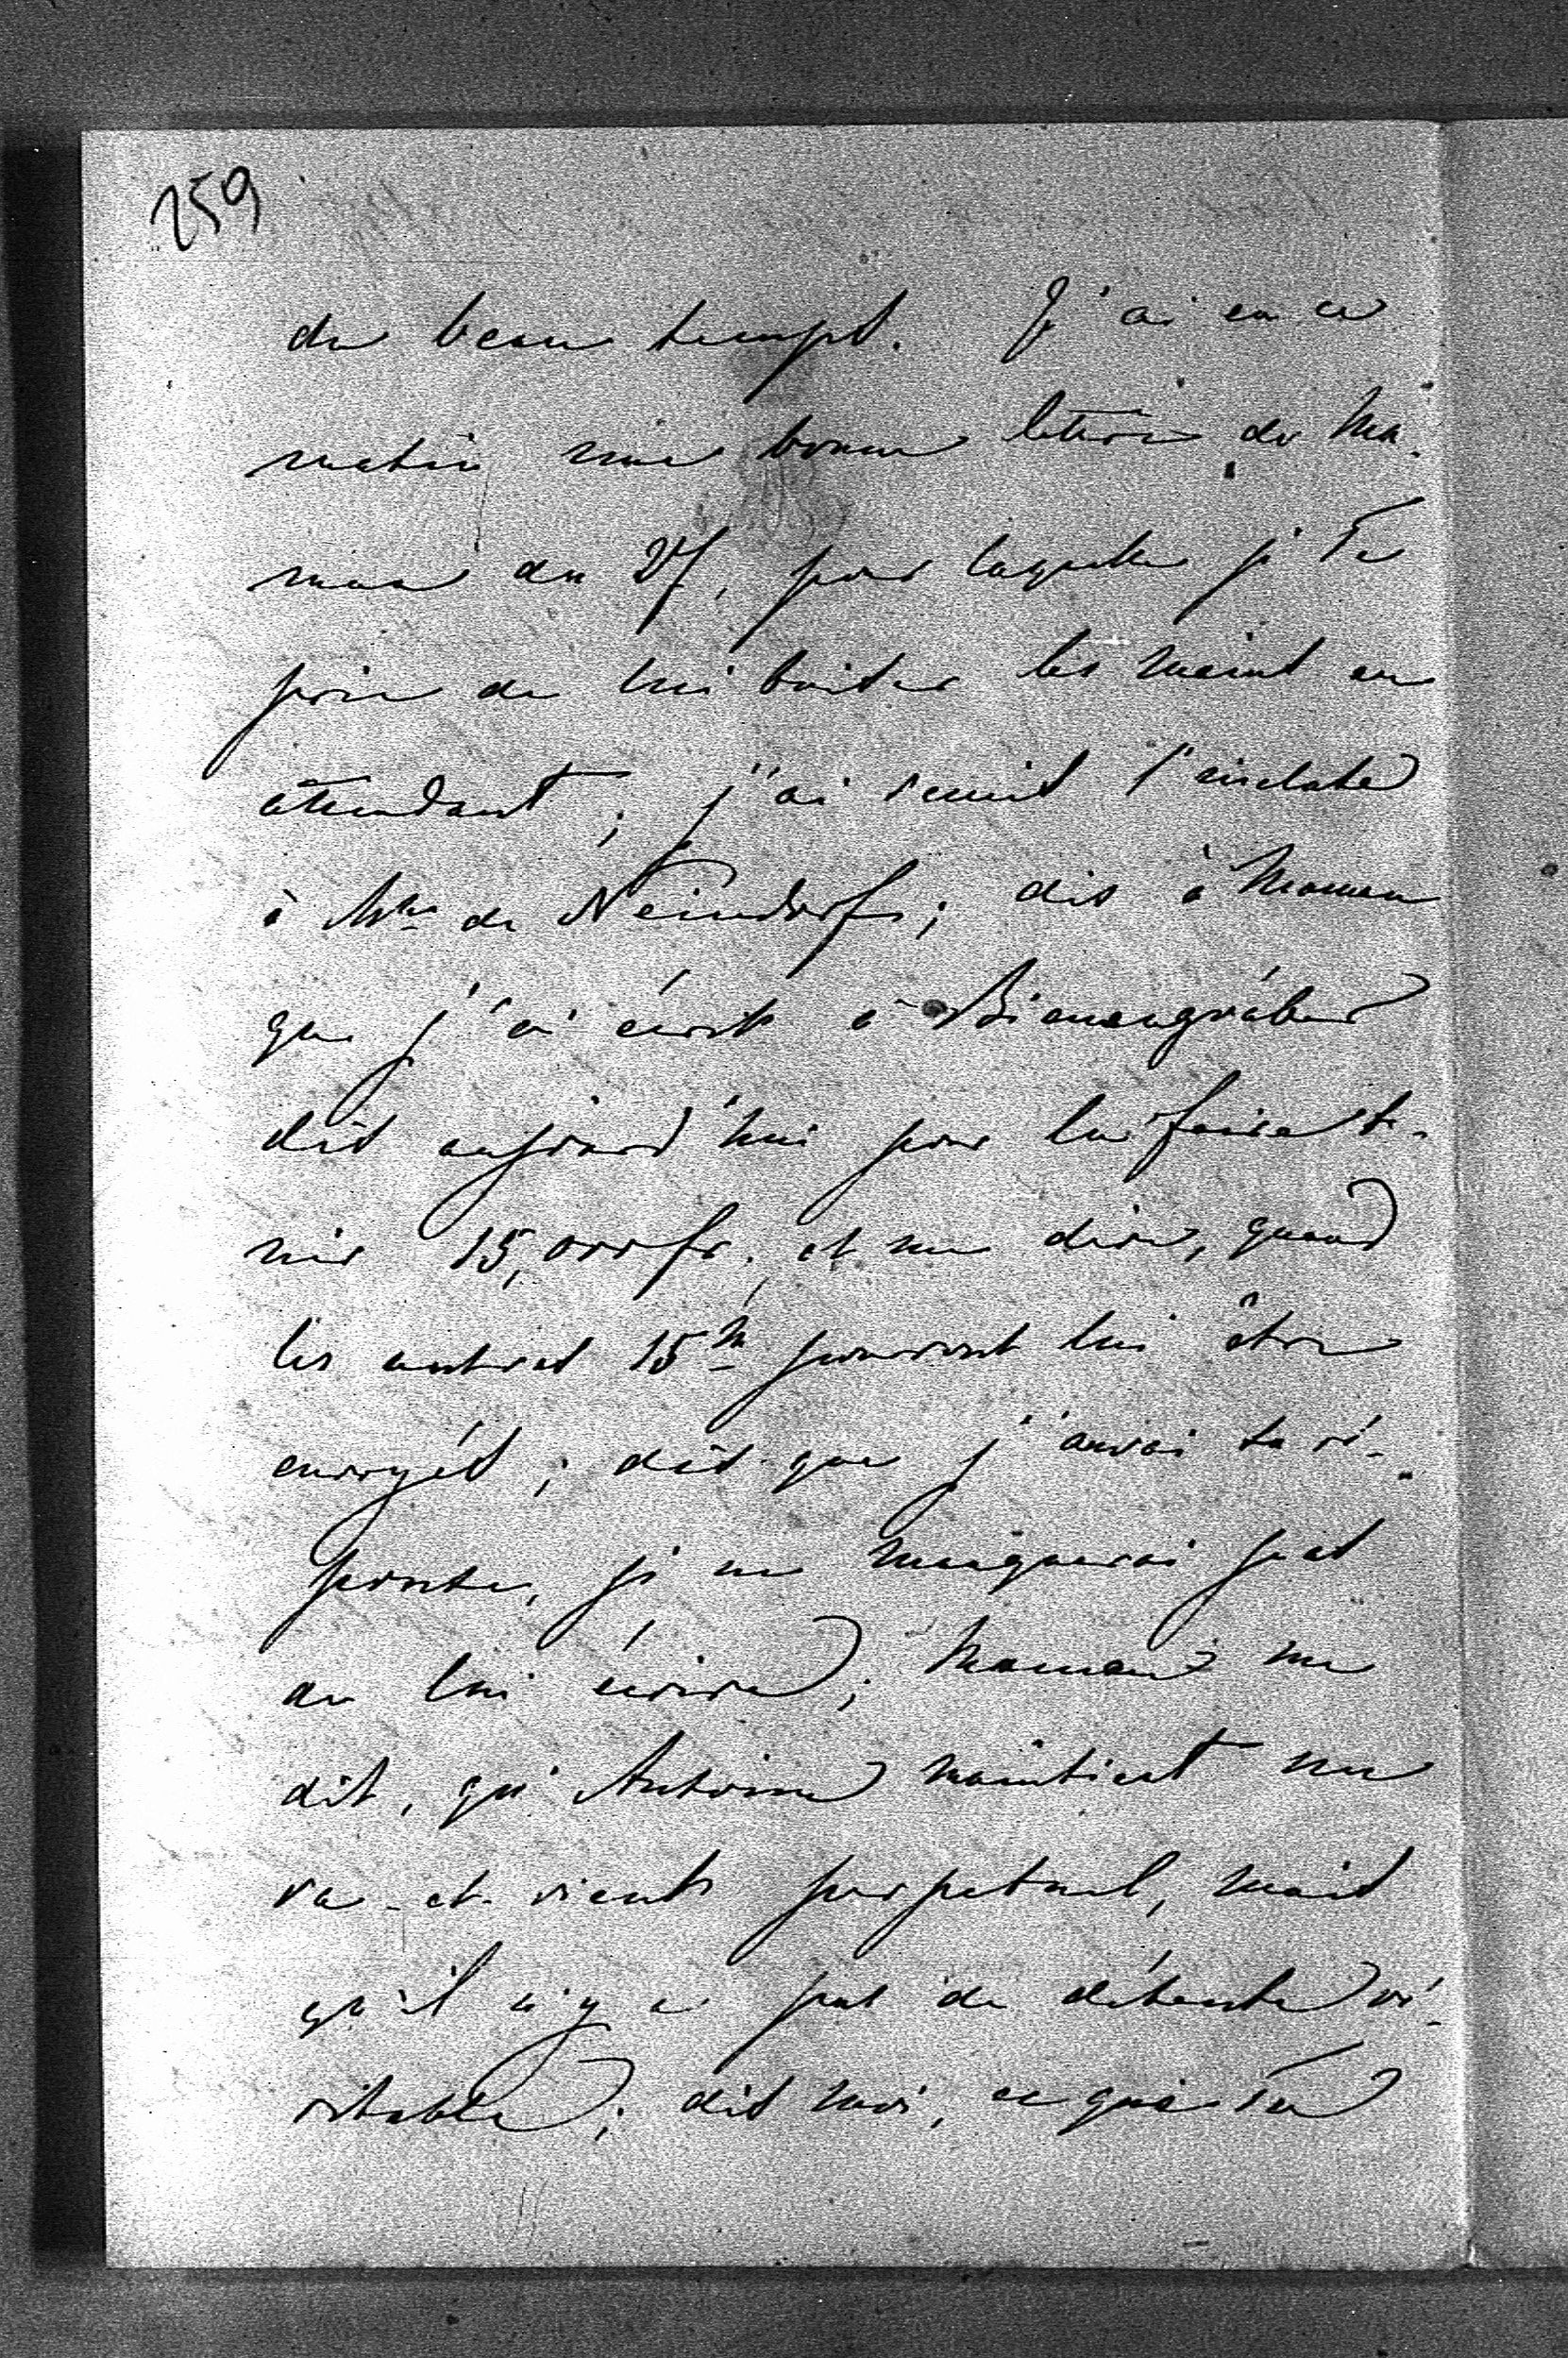 259
du beau temps. J'ai eu ce
matin une bonne lettre de Ma-
man du 27, pour laquelle je Te
prie de lui baiser les mains en
attendant; j'ai remis l'incluse
à Mme de Neindorff; dis à Maman
que j'ai écrit à
dès aujourd'hui pour lui faire te-
nir 15,000 fr. et me dire, quand
les autres 15m pourront lui être
envoyés; dès que j'aurai sa ré-
ponse, je ne manquerai pas
de lui écrire; Maman me
dit, qu'Antoine maintient un
va-et-vient perpetuel, mais
qu'il n'y a pas de détente vé-
ritable; dis moi, ce que Tu